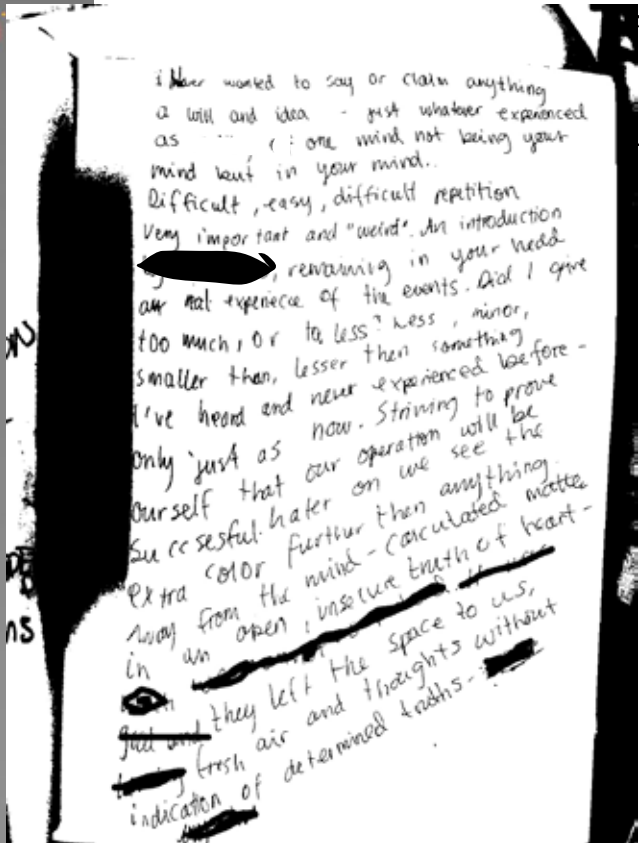 i Never wanted to say or claim anything
a will and idea - just whatever experienced
as one mind not being your
mind but in your mind..
Difficult, easy, difficult repetition
Very important and "weird". An introduction
, remaining in your head
experiece of the events. Did I give
too much, or to less? Less, minor,
smaller then, lesser then something
I've heard and never experienced before -
only just as now. Striving to prove
ourself that our operation will be
Succesful. Later on we see the
extra color further then anything
away from the mind - calculated matter
in an open, insecure truth of heart -
they left the space to us,
fresh air and thoughts without
indication of determined truths -
ON
ns